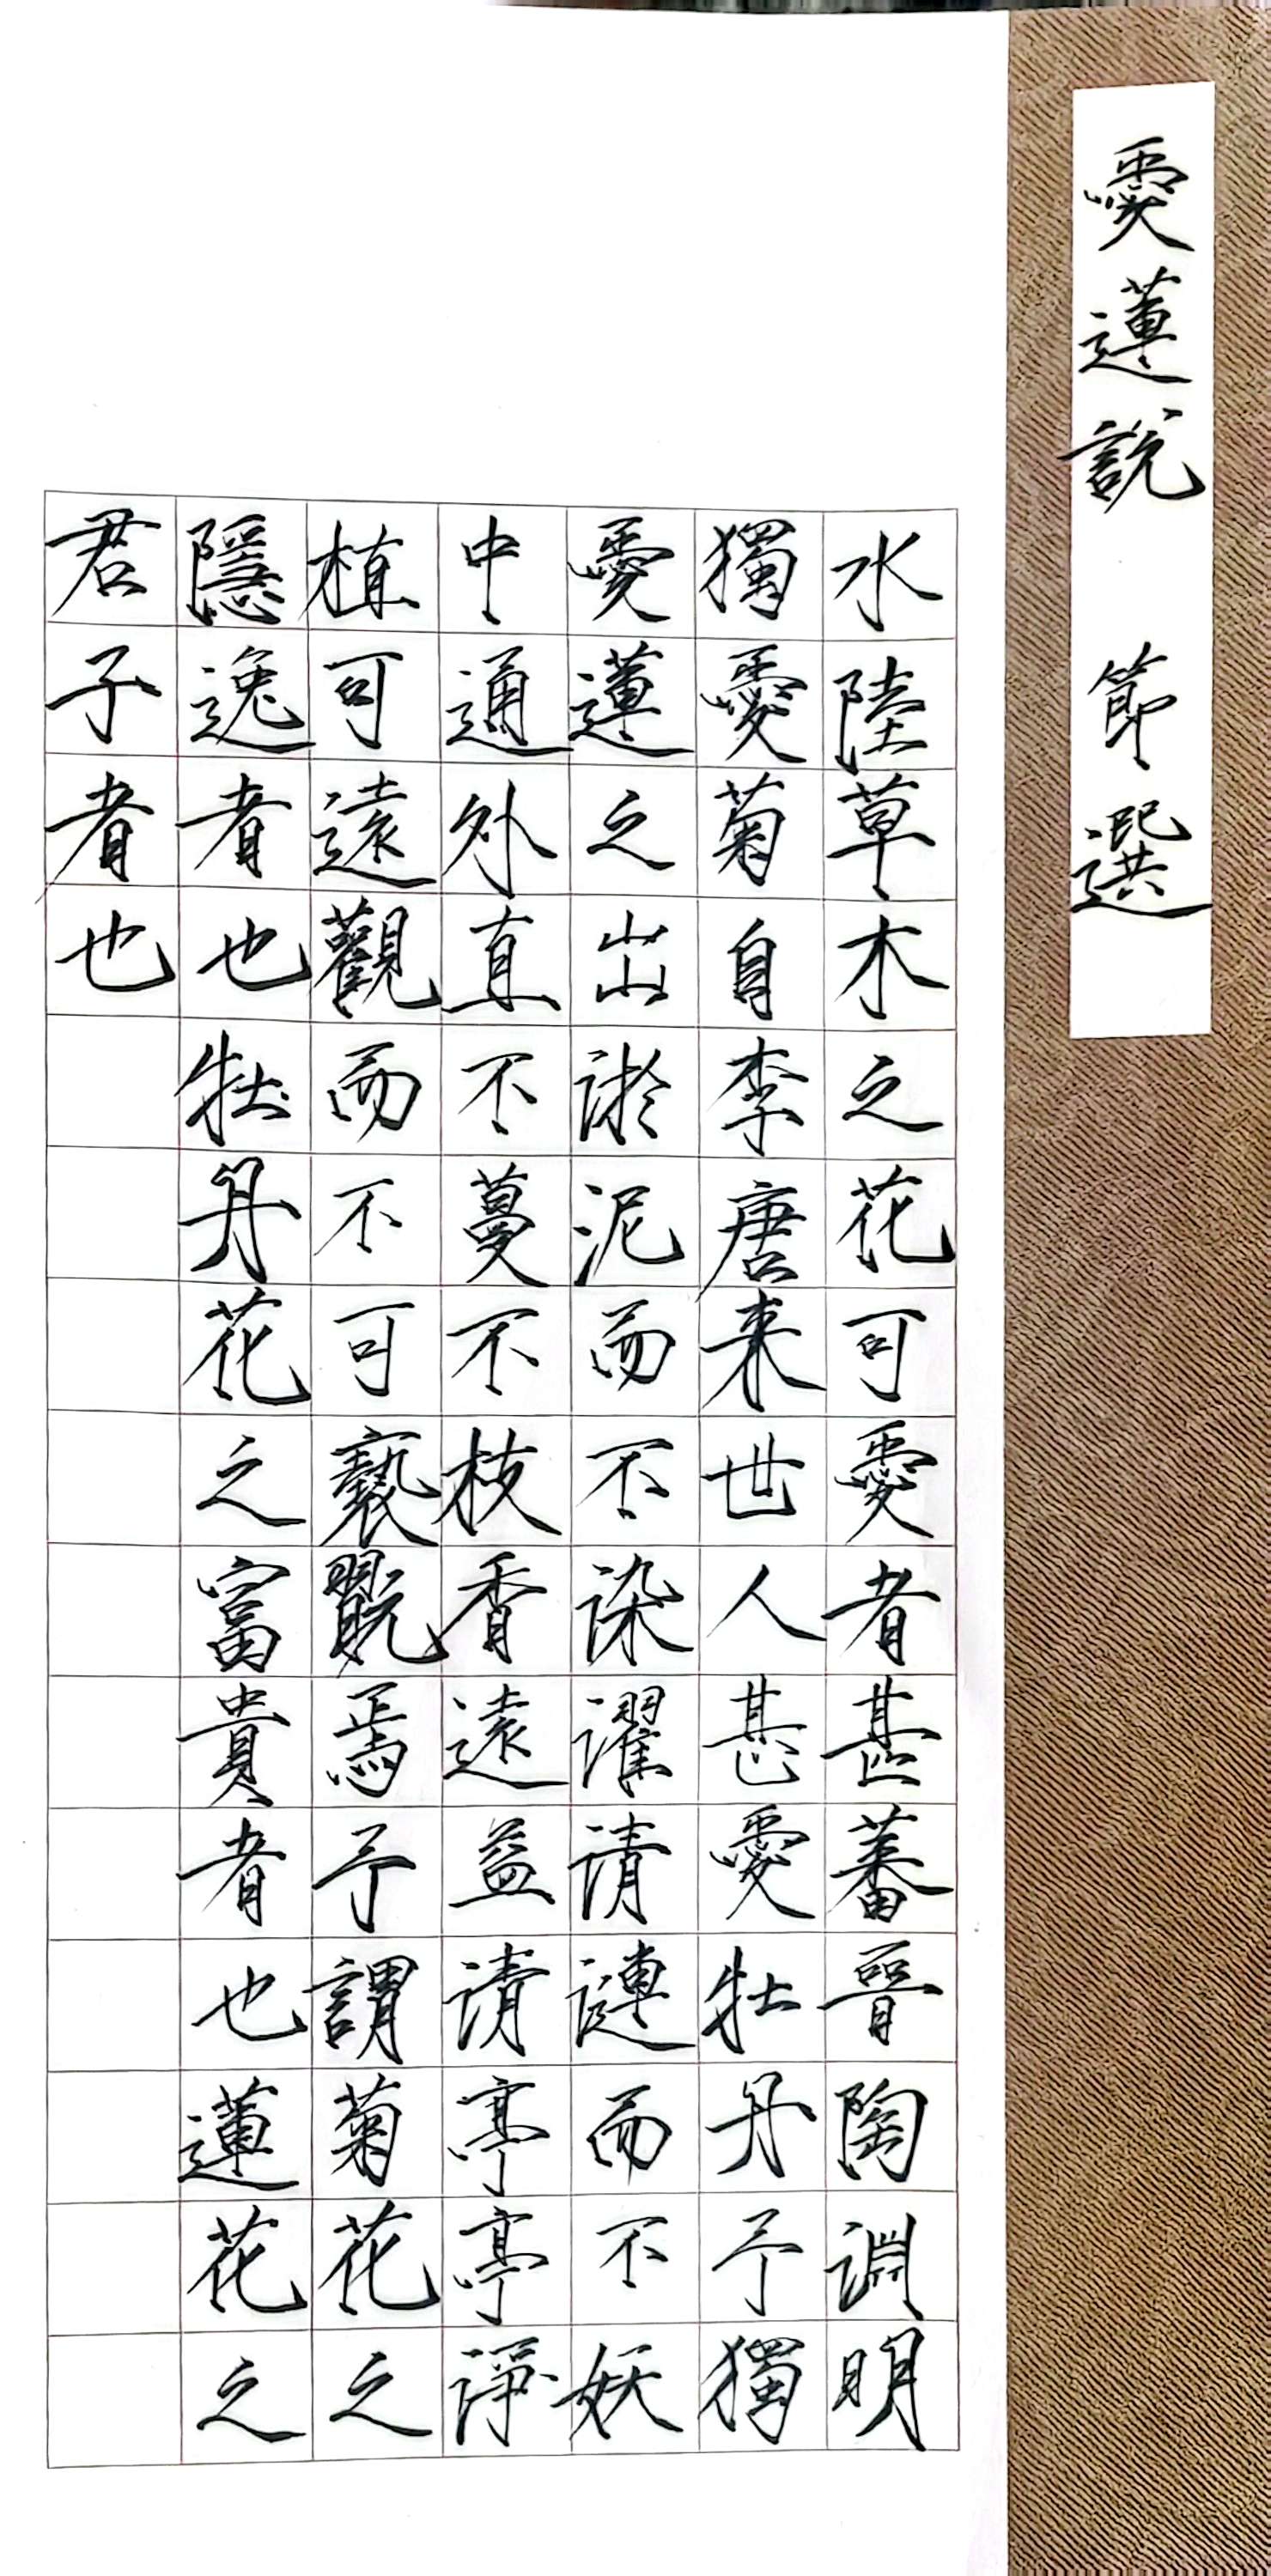 愛蓮說 節選
水陸草木之花可愛者甚蕃晉陶淵明
獨愛菊自李唐来世人甚愛牡丹予獨
愛蓮之出淤泥而不染濯清漣而不妖
中通外直不蔓不枝香遠益清亭亭淨
植可遠觀而不可褻翫焉予謂菊花之
隱逸者也牡丹花之富貴者也蓮花之
君子者也